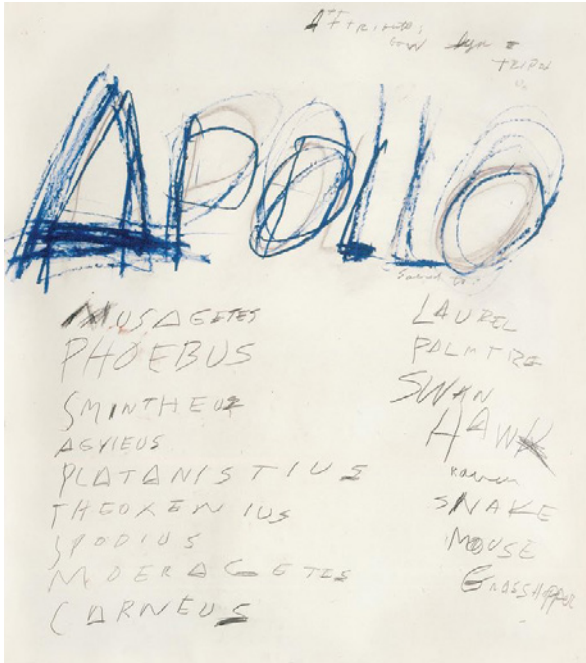 ATTRIBUTES:
BOW lyre &
TRIPOD
APOLLO
Sacred to:
MUSAGETES
PHOEBUS
SMINTHEUS
AGYIEUS
PLATANISTIUS
THEOXENIUS
SPODIUS
MOERAGETES
CARNEUS
LAUREL
PALM TREE
SWAN
HAWK
raven
SNAKE
MOUSE
GRASSHOPPER